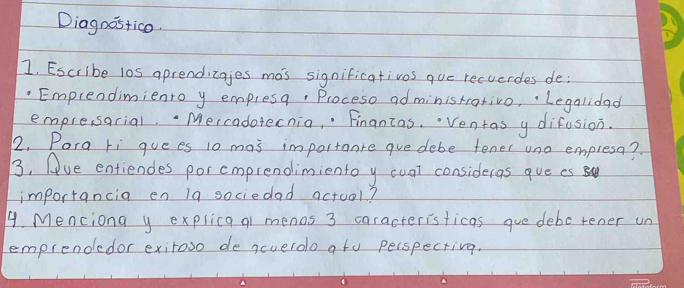 Diagnóstico.
1. Escribe los aprendizajes más significativos que recuerdes de:
• Emprendimiento y empresa • Proceso administrativo. • Legalidad
empresarial. • Mercadotecnia, • Finanzas. • Ventas y difusión.
2. Para ti que es lo más importante que debe tener una empresa?.
3. Que entiendes por emprendimiento y cual consideras que es su
importancia en la sociedad actual?
4. Menciona y explica al menos 3 características que debe tener un
emprendedor exitoso de acuerdo a tu perspectiva.